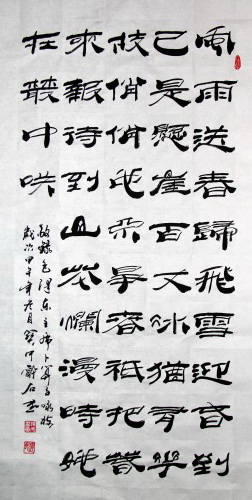 風雨送春歸飛雪迎春到
已是懸崖百丈冰猶有花
枝俏俏也不爭春祇把春
來報待到山花爛漫時她
在叢中咲
敬錄毛澤東主席卜算子咏梅
歲次甲午年月